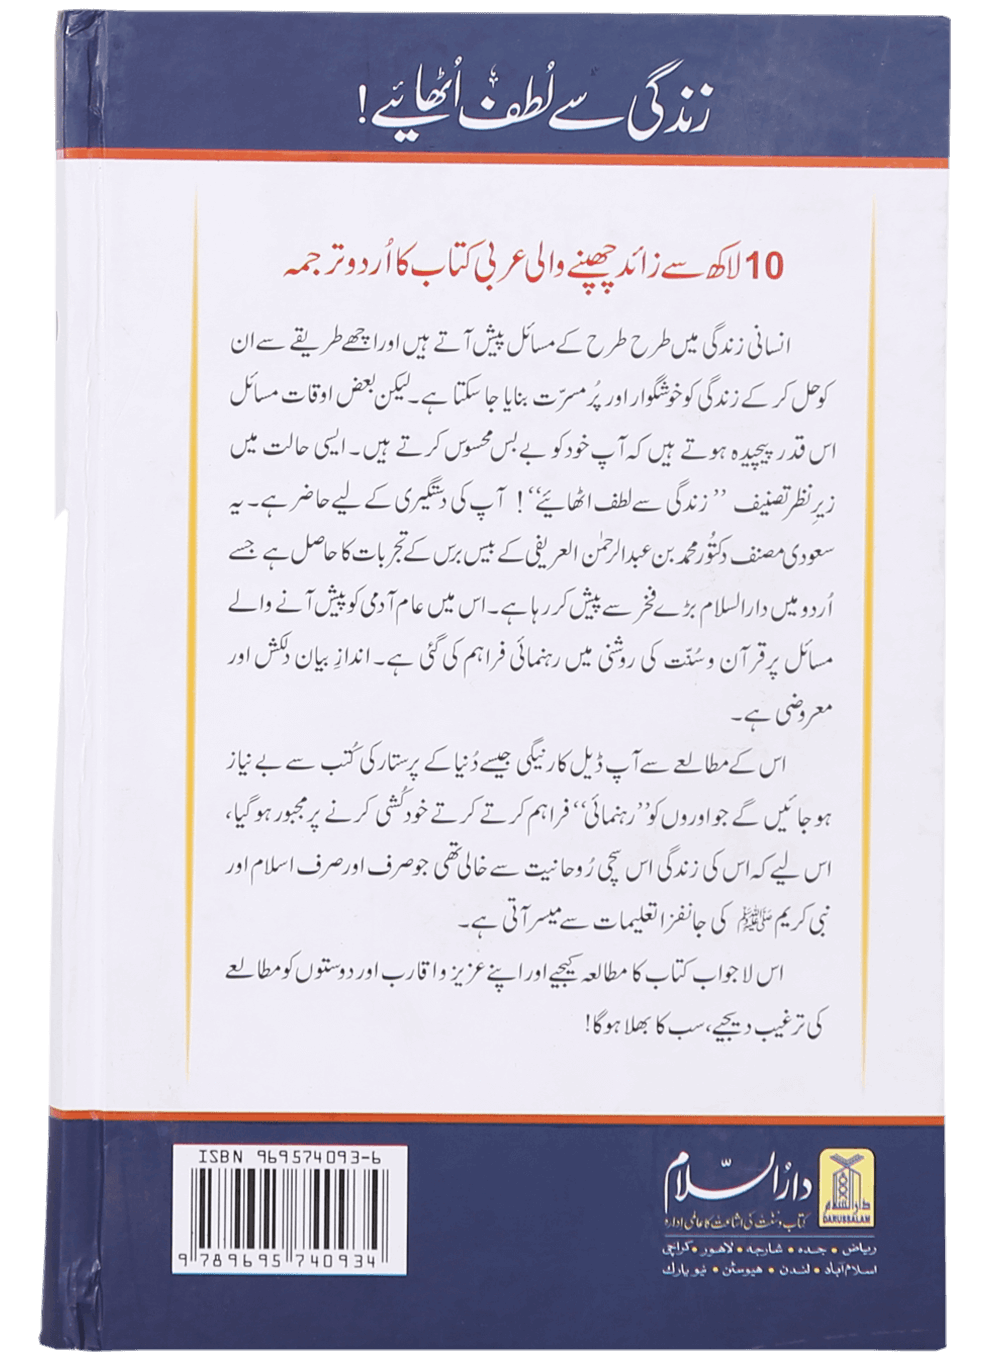 زندگی سے لُطف اُٹھائیے!
10 لاکھ سے زائد چھپنے والی عربی کتاب کا اُردو ترجمہ
انسانی زندگی میں طرح طرح کے مسائل پیش آتے ہیں اور اچھے طریقے سے ان
کو حل کر کے زندگی کو خوشگوار اور پُر مسرّت بنایا جا سکتا ہے۔ لیکن بعض اوقات مسائل
اس قدر پیچیدہ ہوتے ہیں کہ آپ خود کو بے بس محسوس کرتے ہیں۔ ایسی حالت میں
زیرِ نظر تصنیف ’’زندگی سے لطف اٹھائیے‘‘! آپ کی دستگیری کے لیے حاضر ہے۔ یہ
سعودی مصنف دکتُور محمد بن عبدالرحمٰن العریفی کے بیس برس کے تجربات کا حاصل ہے جسے
اُردو میں دارالسلام بڑے فخر سے پیش کر رہا ہے۔ اس میں عام آدمی کو پیش آنے والے
مسائل پر قرآن و سُنّت کی روشنی میں رہنمائی فراہم کی گئی ہے۔ اندازِ بیان دلکش اور
معروضی ہے۔
اس کے مطالعے سے آپ ڈیل کارنیگی جیسے دُنیا کے پرستار کی کُتب سے بے نیاز
ہو جائیں گے جو اوروں کو ’’رہنمائی‘‘ فراہم کرتے کرتے خودکُشی کرنے پر مجبور ہو گیا،
اس لیے کہ اس کی زندگی اس سچی رُوحانیت سے خالی تھی جو صرف اور صرف اسلام اور
نبی کریم ﷺ کی جانفزا تعلیمات سے میسر آتی ہے۔
اس لاجواب کتاب کا مطالعہ کیجیے اور اپنے عزیز و اقارب اور دوستوں کو مطالعے
کی ترغیب دیجیے، سب کا بھلا ہوگا!
ISBN 969574093-6
9 789695 740934
دارُالسّلام
کتاب و سُنّت کی اشاعت کا عالمی ادارہ
ریاض • جدہ • شارجہ • لاہور • کراچی
اسلام آباد • لندن • ہیوسٹن • نیویارک
دارالسلام
DARUSSALAM